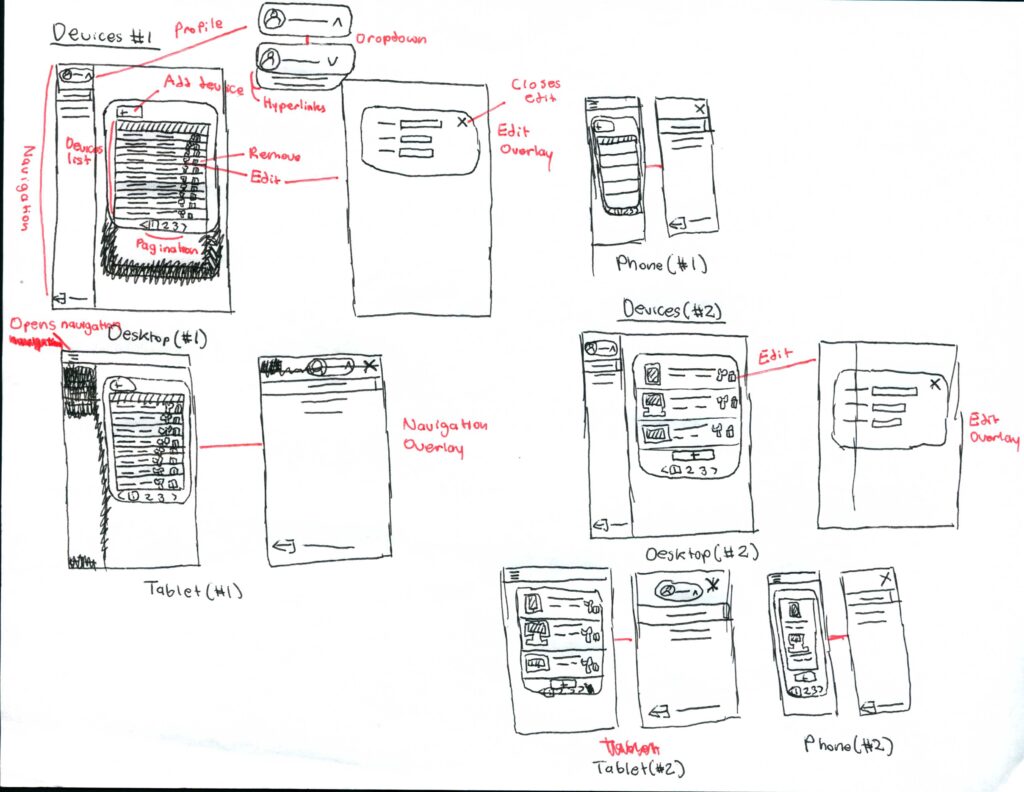 Devices #1
Profile
Dropdown
Hyperlinks
Add device
Devices
list
Remove
Edit
< 1 2 3 >
Pagination
Navigation
Closes
edit
Edit
Overlay
Phone (#1)
Desktop (#1)
Opens navigation
< 1 2 3 >
Tablet (#1)
Navigation
Overlay
Devices (#2)
Edit
< 1 2 3 >
Edit
Overlay
Desktop (#2)
Tablet (#2)
< 1 2 3 >
Phone (#2)